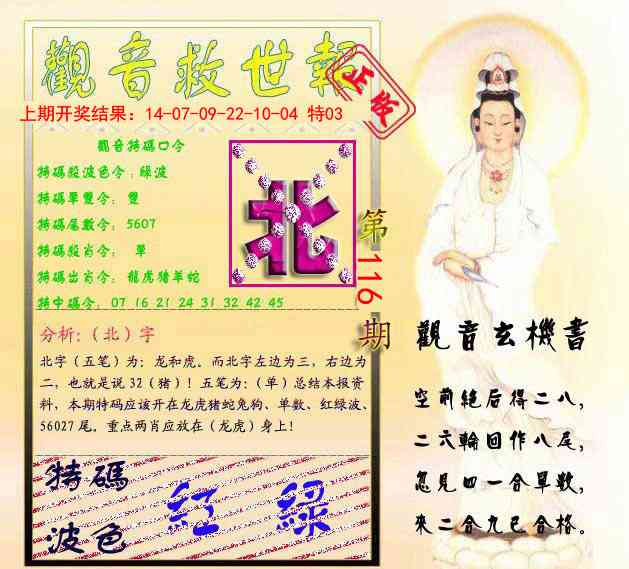 觀音救世報
正版
上期开奖结果：14-07-09-22-10-04 特03
觀音特碼口令
特碼段波色令：綠波
特碼單雙令： 雙
特碼尾數令： 5607
特碼段肖令： 單
特碼出肖令： 龍虎猪羊蛇
特中碼令： 07 16 21 24 31 32 42 45
北
第116期
分析:（北）字
北字（五笔）为：龙和虎。而北字左边为三，右边为
二，也就是说 32（猪）！五笔为：（单）总结本报资
料，本期特码应该开在龙虎猪蛇兔狗、单数、红绿波、
56027 尾。重点两肖应放在（龙虎）身上！
特碼
波色
紅 綠
觀音玄機書
空前絕后得二八，
二六輪回作八尾，
忽見四一合單數，
來二合九已合格。